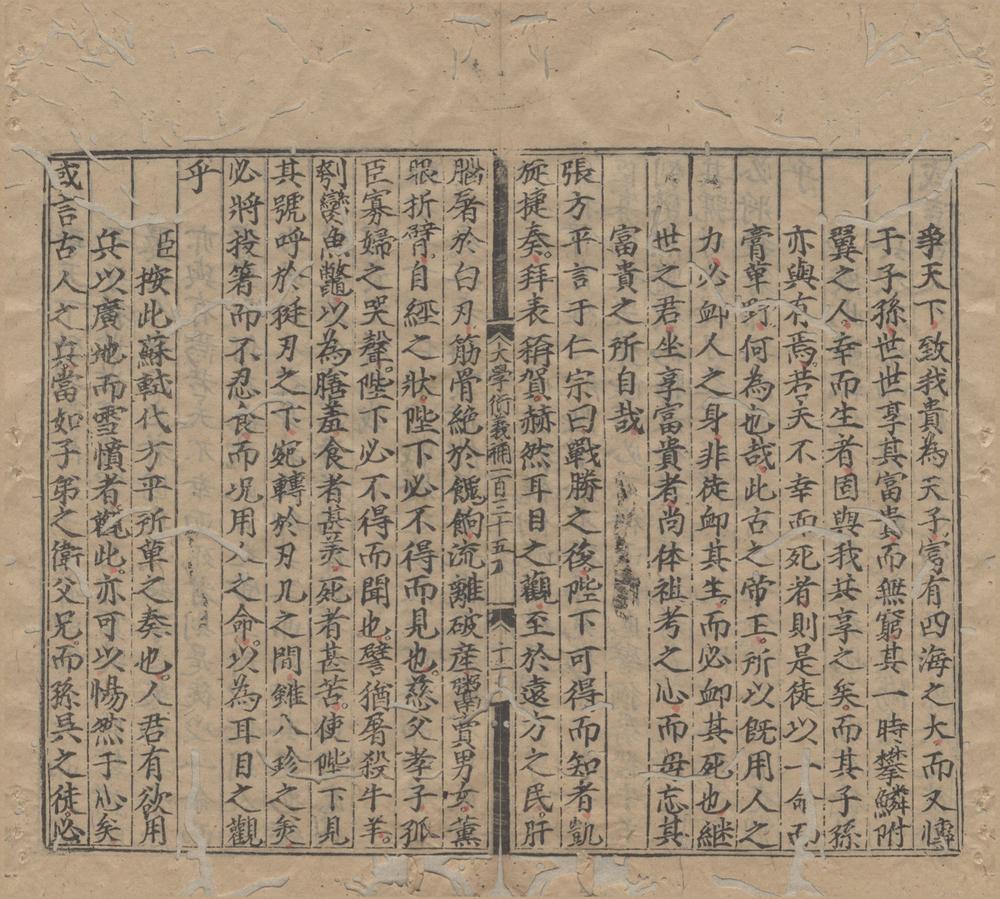 爭天下致我貴為天子富有四海之大而又傳
于子孫世世享其富貴而無窮其一時攀鱗附
翼之人幸而生者固與我共享之矣而其子孫
亦與有焉若夫不幸而死者則是徒以一命而
膏草野何為也哉此古之帝王所以既用人之
力必卹人之身非徒卹其生而必卹其死也継
世之君坐享富貴者尚体祖考之心而毋忘其
富貴之所自哉
張方平言于仁宗曰戰勝之後陛下可得而知者凱
旋捷奏拜表稱賀赫然耳目之觀至於遠方之民肝
大學衍義補一百三十五
十二
腦屠於白刃筋骨絕於餽餉流離破產鬻賣男女薰
眼折臂自經之狀陛下必不得而見也慈父孝子孤
臣寡婦之哭聲陛下必不得而聞也譬猶屠殺牛羊
刳臠魚鼈以為膳羞食者甚美死者甚苦使陛下見
其號呼於挺刃之下宛轉於刃几之間雖八珍之美
必將投箸而不忍食而况用人之命以為耳目之觀
乎
臣按此蘇軾代方平所草之奏也人君有欲用
兵以廣地而雪憤者觀此亦可以惕然于心矣
或言古人之兵當如子弟之衛父兄而孫吳之徒必